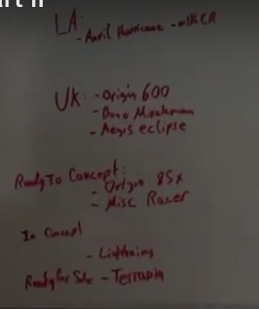 LA:
- Anvil Hurricane - MISC R
UK: - Origin 600
- Banu Merchantman
- Aegis eclipse
Ready To Concept:
- Origin 85x
- Misc Racer
In Concept
- Lightning
Ready for Sale - Terrapin